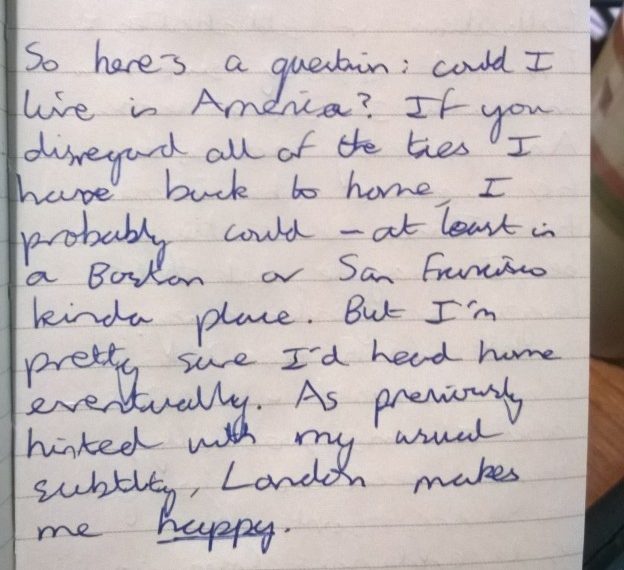 So here's a question: could I
live in America? If you
disregard all of the ties I
have back to home, I
probably could - at least in
a Boston or San Francisco
kinda place. But I'm
pretty sure I'd head home
eventually. As previously
hinted with my usual
subtlty, London makes
me happy.